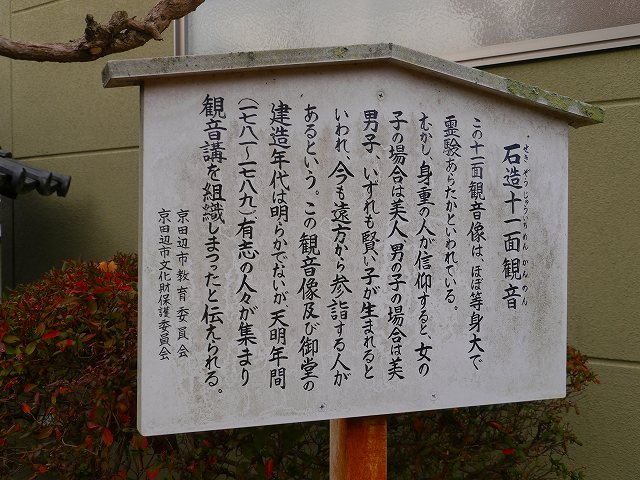 石造十一面観音
せきぞうじゅういちめんかんのん
この十一面観音像は、ほぼ等身大で
霊験あらたかといわれている。
むかし、身重の人が信仰すると、女の
子の場合は美人、男の子の場合は美
男子、いずれも賢い子が生まれると
いわれ、今も遠方から参詣する人が
あるという。この観音像及び御堂の
建造年代は明らかでないが、天明年間
(一七八一~一七八九)有志の人々が集まり
観音講を組織しまつったと伝えられる。
京田辺市教育委員会
京田辺市文化財保護委員会